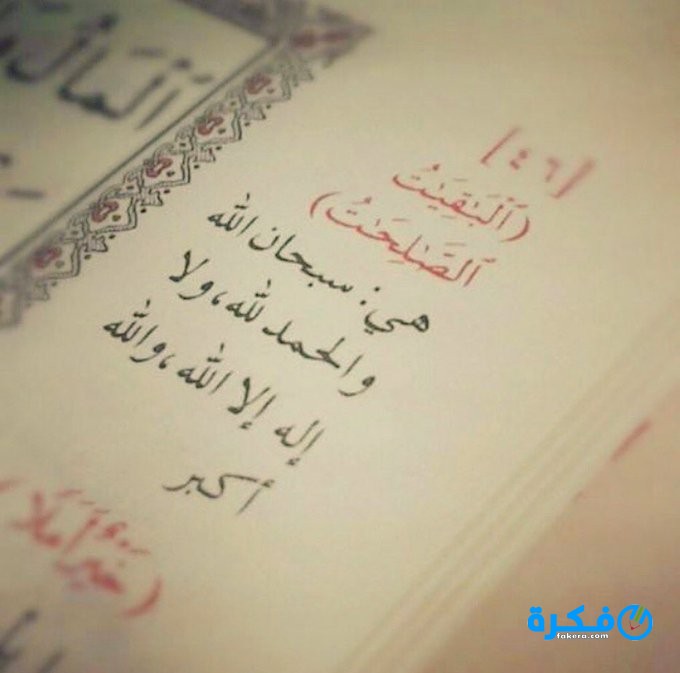 ٱلۡمَالُ
[٤٦]
(ٱلۡبَٰقِيَٰتُ
ٱلصَّٰلِحَٰتُ)
هي: سبحان الله
والحمد لله، ولا
إله إلا الله، والله
أكبر
(خَيۡرٌ أَمَلٗا
فكرة
fakera.com